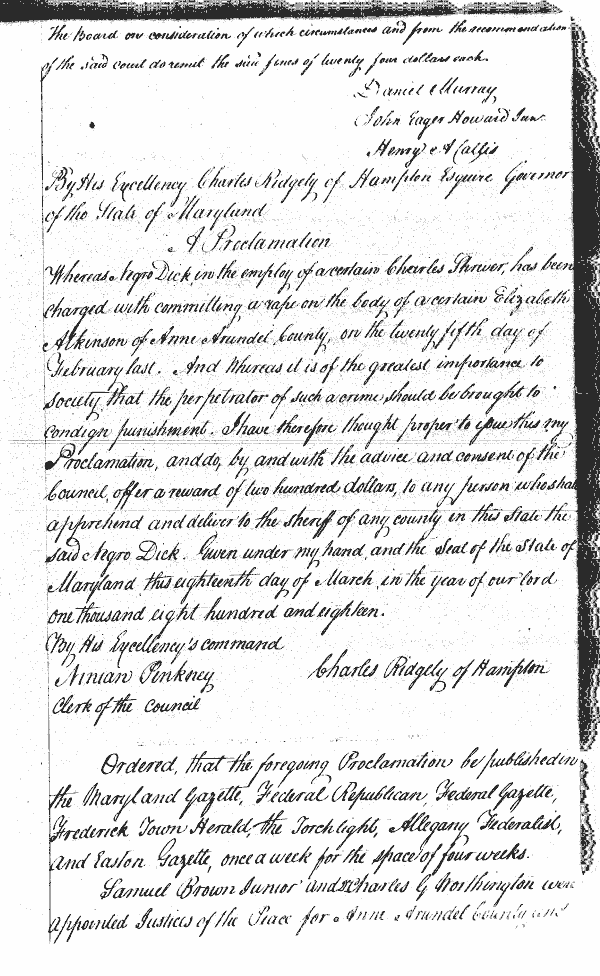 The Board on consideration of which circumstances and from the recommendation
of the said court do remit the said fines of twenty four dollars each.
Daniel Murray
John Eager Howard Junr
Henry A Callis
By His Excellency Charles Ridgely of Hampton Esquire Governor
of the State of Maryland
A Proclamation
Whereas Negro Dick, in the employ of a certain Charles Shriver, has been
charged with committing a rape on the body of a certain Elizabeth
Atkinson of Anne Arundel County, on the twenty fifth day of
February last. And Whereas it is of the greatest importance to
society, that the perpetrator of such a crime should be brought to
condign punishment. I have therefore thought proper to issue this my
Proclamation, and do, by and with the advice and consent of the
Council, offer a reward of two hundred dollars, to any person who shall
apprehend and deliver to the sheriff of any county in this State the
said Negro Dick. Given under my hand, and the Seal of the State of
Maryland this eighteenth day of March, in the year of our lord
one thousand eight hundred and eighteen.
By His Excellency's command
Ninian Pinkney Charles Ridgely of Hampton
Clerk of the Council
Ordered, that the foregoing Proclamation be published in
the Maryland Gazette, Federal Republican, Federal Gazette,
Frederick Town Herald, the Torchlight, Allegany Federalist,
and Easton Gazette, once a week for the space of four weeks.
Samuel Brown Junior and Charles G Worthington were
appointed Justices of the Peace for Anne Arundel County and